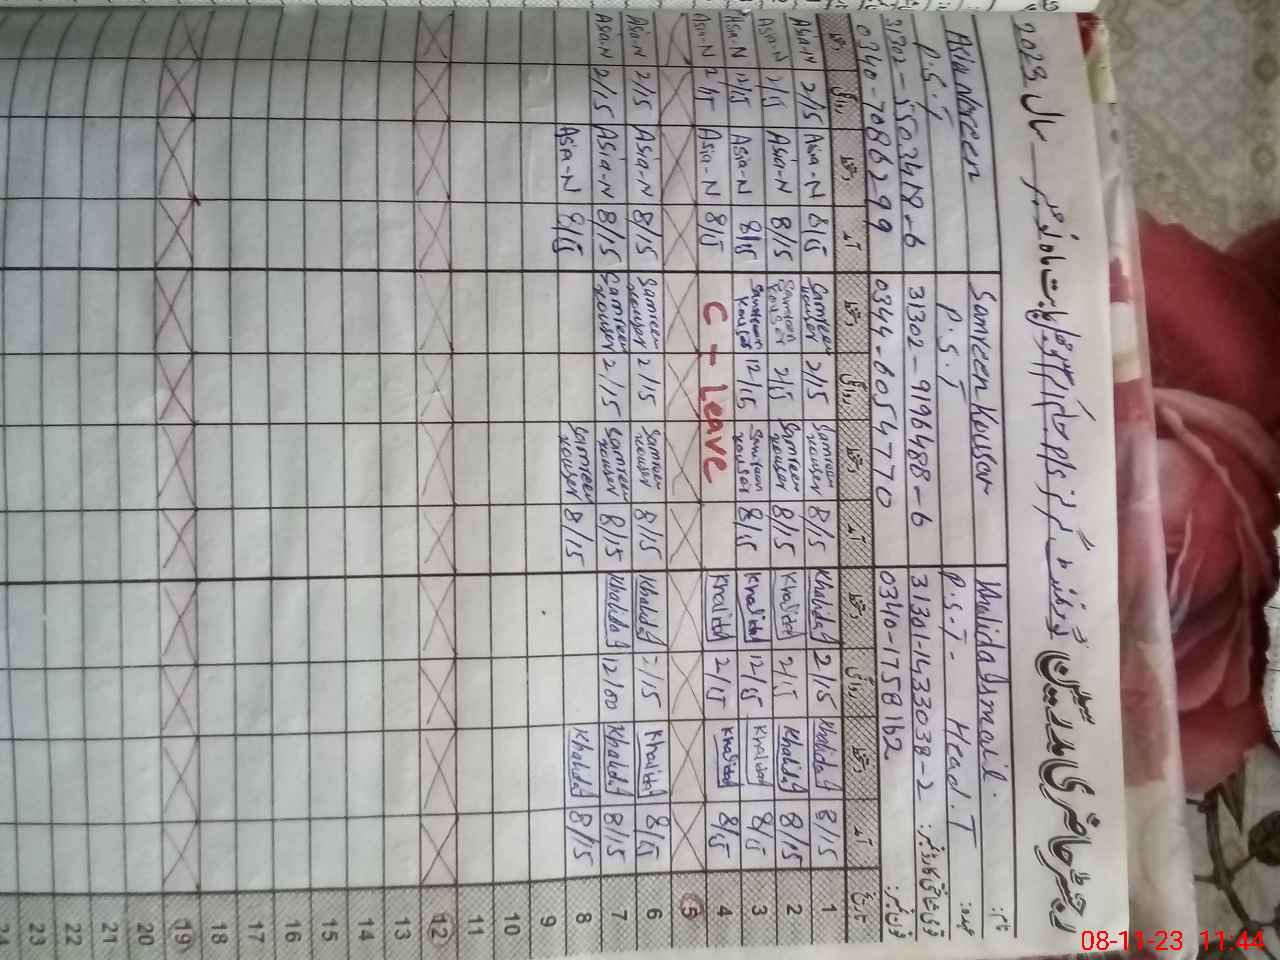 رجسٹر حاضری مدرسین
سال 2023
نام:
Khalida Ismail.
Samreen Kousar
Asia Noreen
عہدہ:
P.S.T - Head.T
P.S.T
P.S.T
قومی شناختی کارڈ نمبر:
31301-1433038-2
31302-9196488-6
31302-5503418-6
فون نمبر:
0340-1758162
0344-6054770
0340-7086299
تاریخ آمد دستخط روانگی دستخط آمد دستخط روانگی دستخط آمد دستخط روانگی دستخط
1 8/15 Khalida 2/15 Khalida 8/15 Samreen Kouser 2/15 Samreen Kouser 8/15 Asia-N 2/15 Asia-N
2 8/15 Khalida 2/15 Khalida 8/15 Samreen Kouser 2/15 Samreen Kouser 8/15 Asia-N 2/15 Asia-N
3 8/15 Khalida 12/15 Khalida 8/15 Samreen Kouser 12/15 Samreen Kouser 8/15 Asia-N 12/15 Asia-N
4 8/15 Khalida 2/15 Khalida C - Leave 8/15 Asia-N 2/15 Asia-N
5
6 8/15 Khalida 2/15 Khalida 8/15 Samreen Kouser 2/15 Samreen Kouser 8/15 Asia-N 2/15 Asia-N
7 8/15 Khalida 12/00 Khalida 8/15 Samreen Kouser 2/15 Samreen Kouser 8/15 Asia-N 2/15 Asia-N
8 8/15 Khalida 8/15 Samreen Kouser 8/15 Asia-N
9
10
11
12
13
14
15
16
17
18
19
20
21
22
23
24
08-11-23 11:44